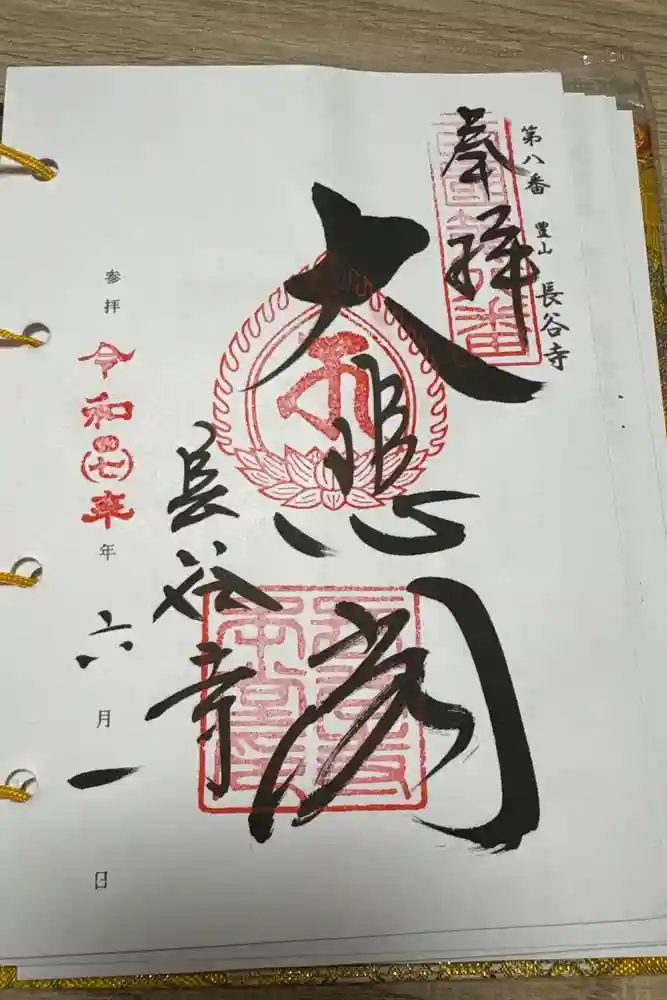 第八番 豊山 長谷寺
奉拝
大悲閣
長谷寺
参拝 令和七年 年 六月一日